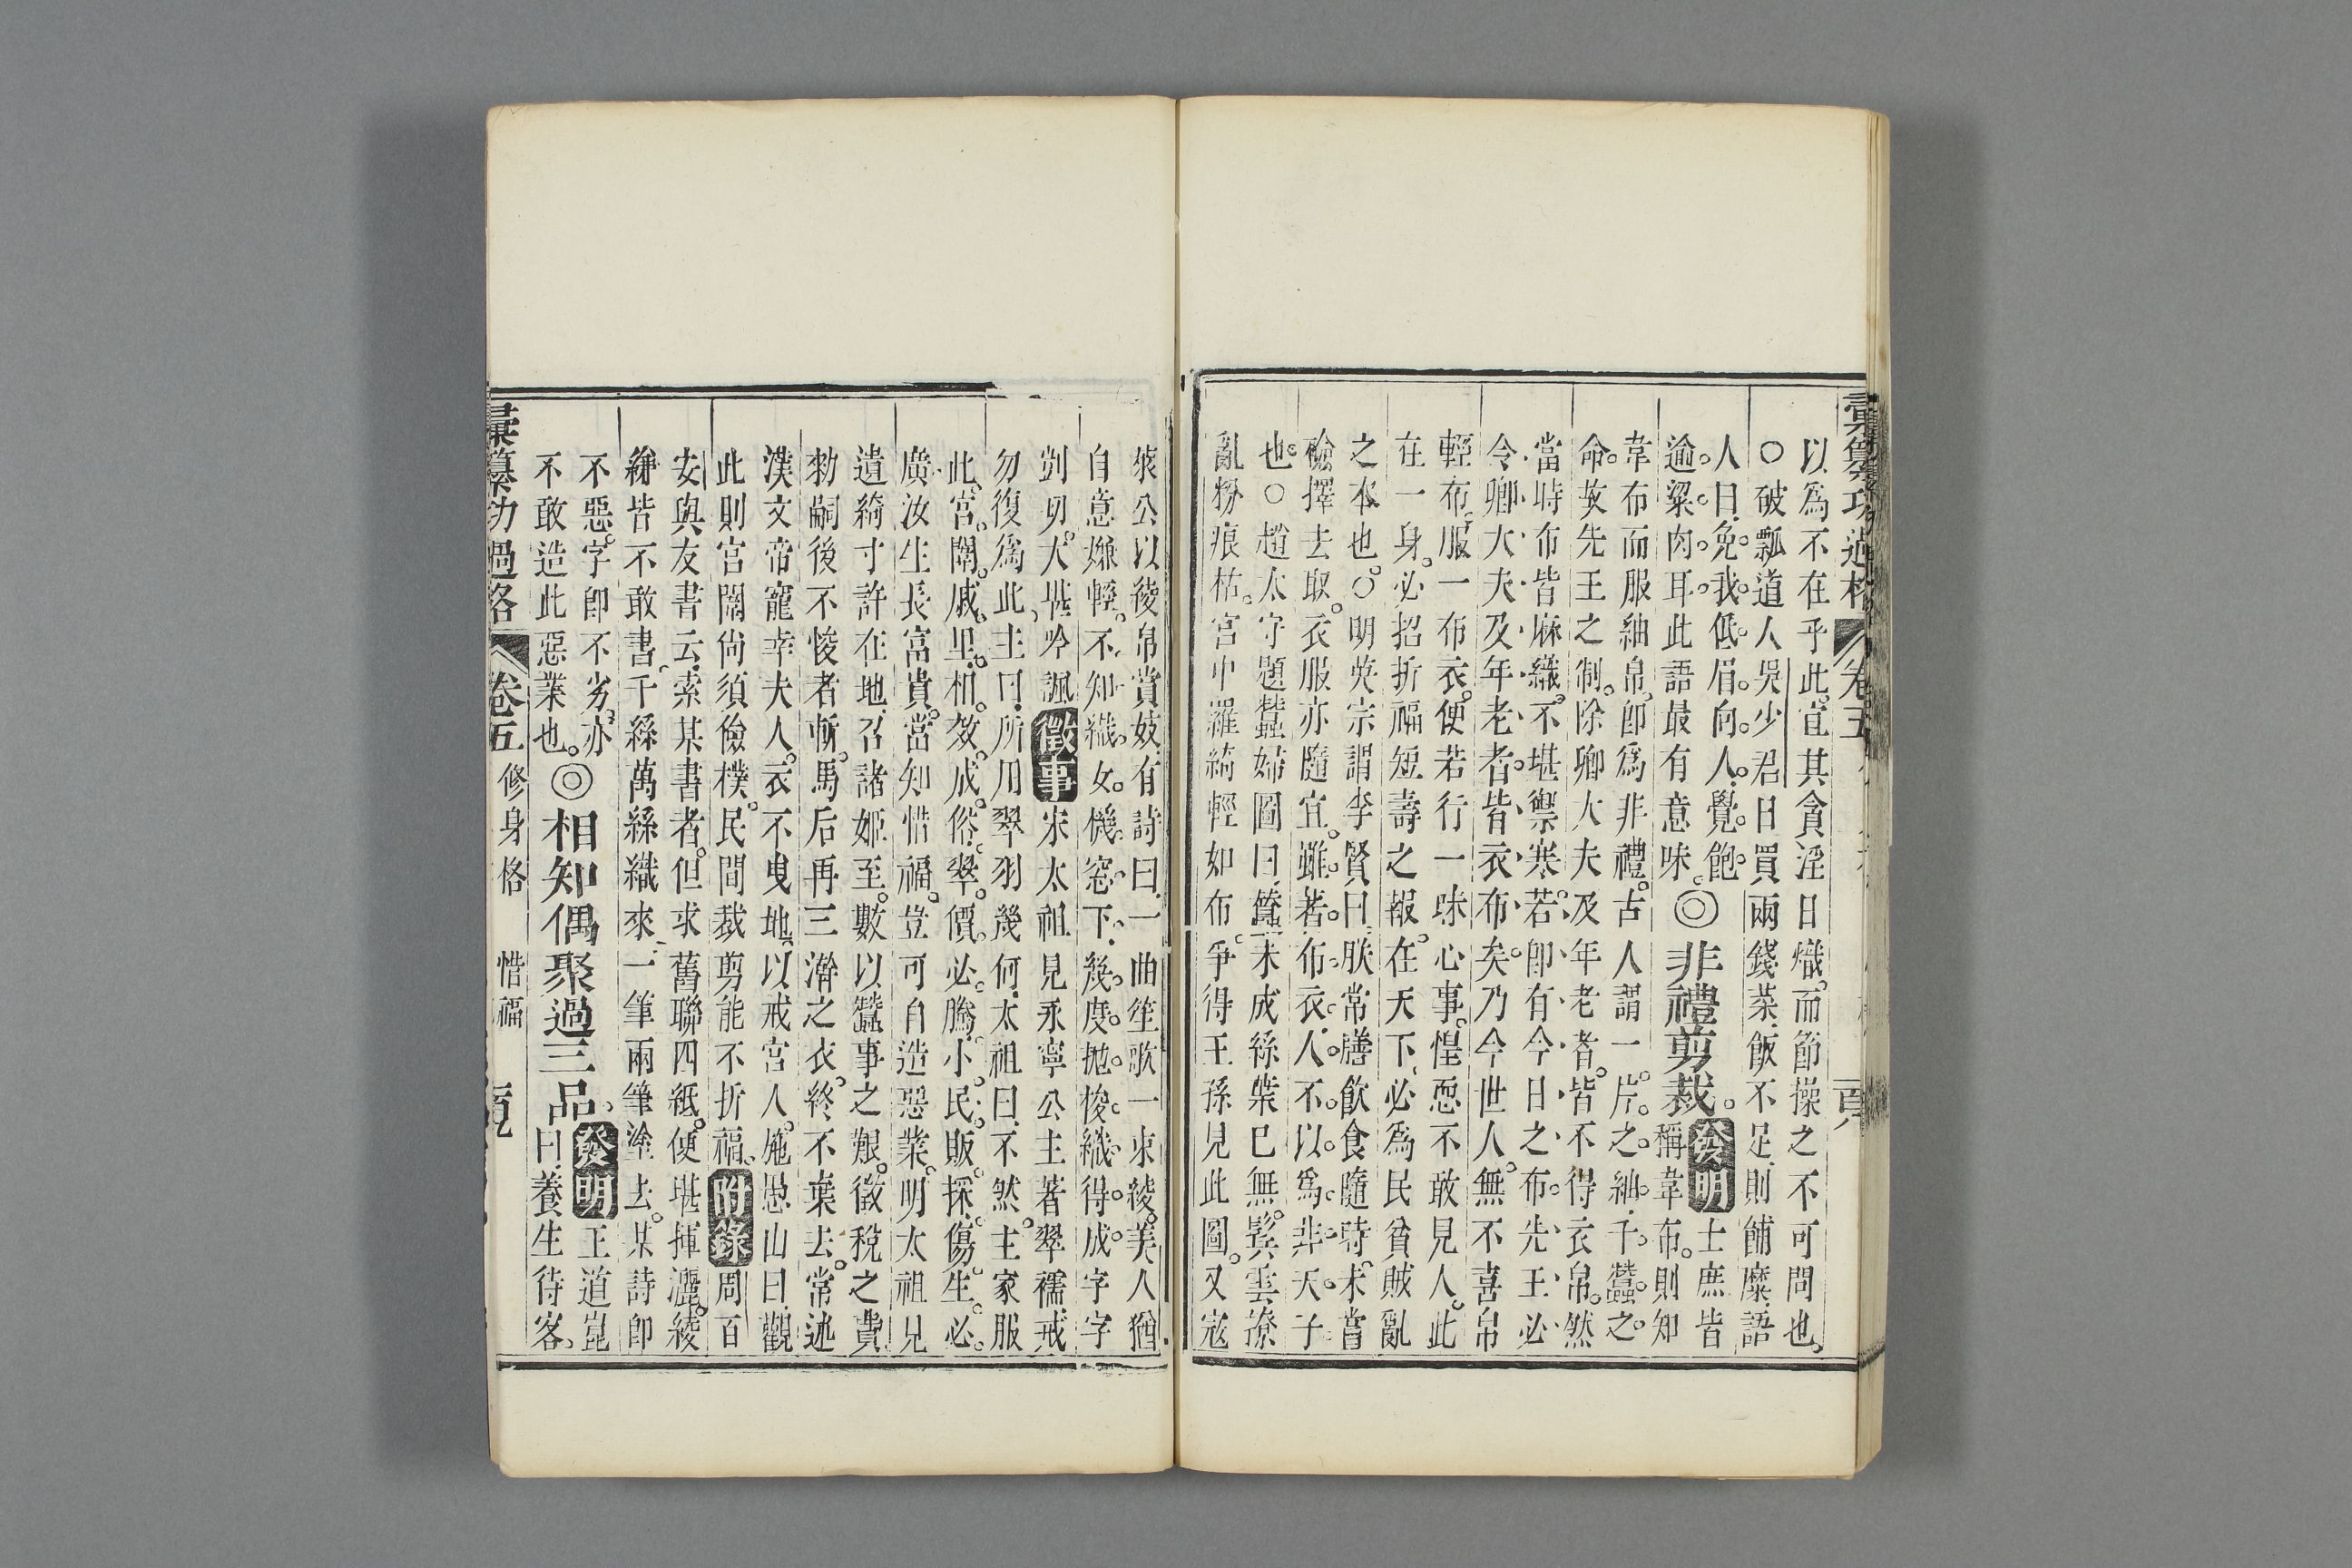 彙纂功過格 卷五
以爲不在乎此豈其貪淫日熾而節操之不可問也
○破瓢道人吳少君曰買兩錢菜飯不足則餔糜語
人曰免我低眉向人覺飽
逾粱肉耳此語最有意味◎非禮剪裁 發明 士庶皆
稱韋布則知
韋布而服紬帛卽爲非禮古人謂一片之紬千蠶之
命故先王之制除卿大夫及年老者皆不得衣帛然
當時布皆麻織不堪禦寒若卽有今日之布先王必
令卿大夫及年老者皆衣布矣乃今世人無不喜帛
輕布服一布衣便若行一昧心事惶恧不敢見人此
在一身必招折福短壽之報在天下必爲民貧賊亂
之本也○明英宗謂李賢曰朕常膳飲食隨時未嘗
檢擇去取衣服亦隨宜雖著布衣人不以爲非天子
也○趙太守題蠶婦圖曰蠶未成絲葉已無鬂雲撩
亂粉痕枯宮中羅綺輕如布爭得王孫見此圖又寇
萊公以綾帛賞妓有詩曰一曲笙歌一束綾美人猶
自意嫌輕不知織女機窓下幾度拋梭織得成字字
剴切大堪吟諷 徵事 宋太祖見永寧公主著翠襦戒
勿復爲此主曰所用翠羽幾何太祖曰不然主家服
此宮闈戚里相效成俗翠價必騰小民販採傷生必
廣汝生長富貴當知惜福豈可自造惡業明太祖見
遺綺寸許在地召諸姬至數以蠶事之艱徵稅之費
勅嗣後不悛者斬馬后再三澣之衣終不棄去常述
漢文帝寵幸夫人衣不曳地以戒宮人施愚山曰觀
此則宮闈尙須儉樸民間裁剪能不折福 附錄 周百
安與友書云索某書者但求舊聯四紙便堪揮灑綾
絹皆不敢書千絲萬絲織來一筆兩筆塗去某詩卽
不惡字卽不劣亦
不敢造此惡業也◎相知偶聚過三品 發明 王道崑
曰養生待客
彙纂功過格 卷五 修身格 惜福